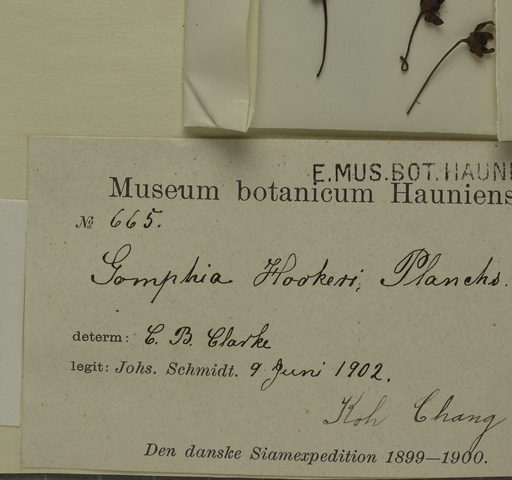 E.MUS.BOT.HAUNI
Museum botanicum Hauniens
№ 665.
Gomphia Hookeri, Planchs.
determ: C. B. Clarke
legit: Johs. Schmidt. 9 Juni 1902.
Koh Chang
Den danske Siamexpedition 1899—1900.